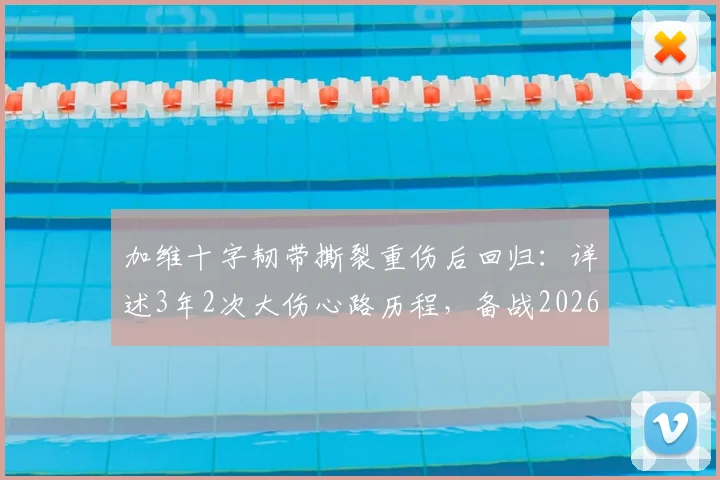 加维十字韧带撕裂重伤后回归：详
述3年2次大伤心路历程，备战2026